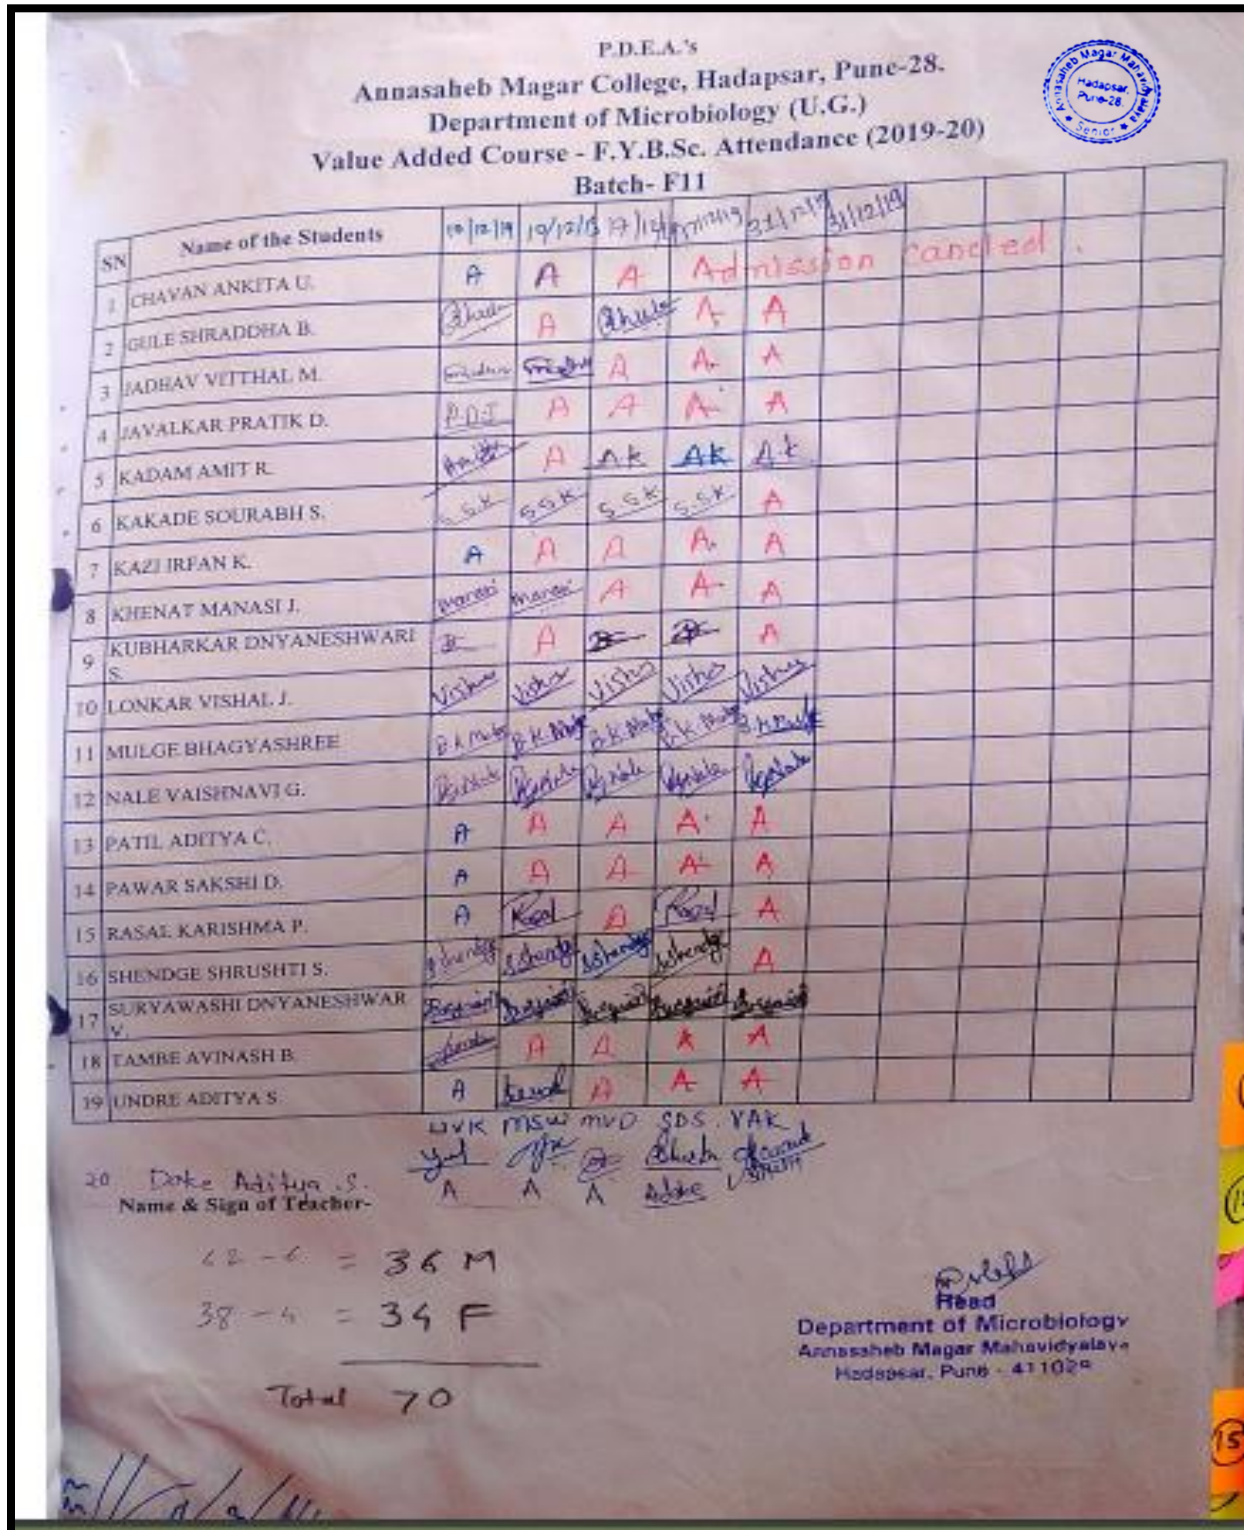 P.D.E.A.'s
Annasaheb Magar College, Hadapsar, Pune-28.
Department of Microbiology (U.G.)
Value Added Course - F.Y.B.Sc. Attendance (2019-20)
Batch- F11
Annasaheb Magar Mahavidyalaya
Hadapsar,
Pune-28.
Senior
SN Name of the Students 10/12/19 10/12/19 17/12/ 17/12/19 31/12/19 31/12/19
1 CHAVAN ANKITA U. A A A Admission cancled.
2 GULE SHRADDHA B. A A A
3 JADHAV VITTHAL M. A A A
4 JAVALKAR PRATIK D. P.D.J A A A A
5 KADAM AMIT R. A AK AK AK
6 KAKADE SOURABH S. S.S.K S.S.K S.S.K S.S.K A
7 KAZI IRFAN K. A A A A A
8 KHENAT MANASI J. Manasi Manasi A A A
9 KUBHARKAR DNYANESHWARI S. A A
10 LONKAR VISHAL J.
11 MULGE BHAGYASHREE
12 NALE VAISHNAVI G.
13 PATIL ADITYA C. A A A A A
14 PAWAR SAKSHI D. A A A A A
15 RASAL KARISHMA P. A Rasal A Rasal A
16 SHENDGE SHRUSHTI S. S.Shendge S.Shendge S.Shendge S.Shendge A
17 SURYAWASHI DNYANESHWAR V.
18 TAMBE AVINASH B. A A A A
19 UNDRE ADITYA S. A A A A
UVK MSW MVD SDS. VAK
20 Doke Aditya .S. A A A
Name & Sign of Teacher-
= 36 M
38 - 4 = 34 F
Total 70
Head
Department of Microbiology
Annasaheb Magar Mahavidyalaya
Hadapsar, Pune - 411028
15